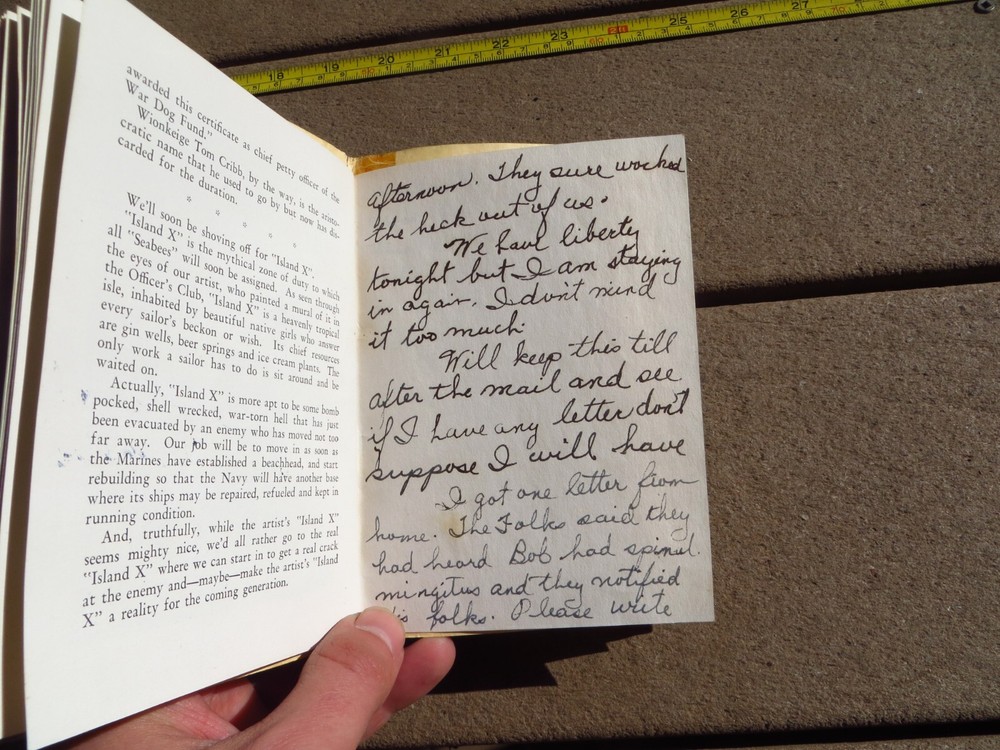 18 19 20 21 22 23 24 25 26 27
awarded this certificate as chief petty officer of the
War Dog Fund."
Wionkeige Tom Cribb, by the way, is the aristo-
cratic name that he used to go by but now has dis-
carded for the duration.
* * * *
We'll soon be shoving off for "Island X".
"Island X" is the mythical zone of duty to which
all "Seabees" will soon be assigned. As seen through
the eyes of our artist, who painted a mural of it in
the Officer's Club, "Island X" is a heavenly tropical
isle, inhabited by beautiful native girls who answer
every sailor's beckon or wish. Its chief resources
are gin wells, beer springs and ice cream plants. The
only work a sailor has to do is sit around and be
waited on.
Actually, "Island X" is more apt to be some bomb
pocked, shell wrecked, war-torn hell that has just
been evacuated by an enemy who has moved not too
far away. Our job will be to move in as soon as
the Marines have established a beachhead, and start
rebuilding so that the Navy will have another base
where its ships may be repaired, refueled and kept in
running condition.
And, truthfully, while the artist's "Island X"
seems mighty nice, we'd all rather go to the real
"Island X" where we can start in to get a real crack
at the enemy and—maybe—make the artist's "Island
X" a reality for the coming generation.
afternoon. They sure worked
the heck out of us.
We have liberty
tonight but I am staying
in again. I don't mind
it too much.
Will keep this till
after the mail and see
if I have any letter don't
suppose I will have
I got one letter from
home. The Folks said they
had heard Bob had spinal
mingitus and they notified
his folks. Please write